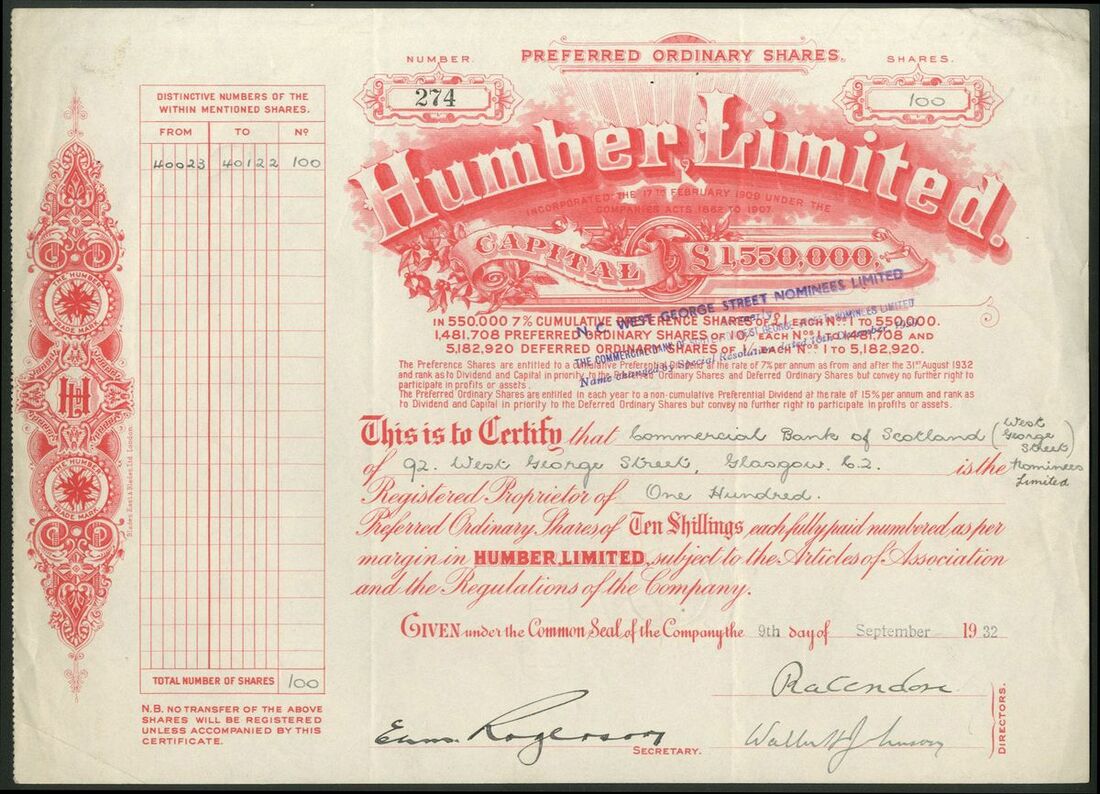 NUMBER.
PREFERRED ORDINARY SHARES.
SHARES.
274
100
Humber Limited.
INCORPORATED THE 17TH FEBRUARY 1909 UNDER THE
COMPANIES ACTS 1862 TO 1907.
CAPITAL £1,550,000.
IN 550.000 7% CUMULATIVE PREFERENCE SHARES OF £1 EACH Nos. 1 TO 550,000.
1,481,708 PREFERRED ORDINARY SHARES OF 10/- EACH Nos. 1 TO 1,481,708 AND
5,182,920 DEFERRED ORDINARY SHARES OF 1/- EACH Nos. 1 TO 5,182,920.
N.C. WEST GEORGE STREET NOMINEES LIMITED
formerly
THE COMMERCIAL BANK OF SCOTLAND (WEST GEORGE STREET) NOMINEES LIMITED
Name changed by Special Resolution dated 10th December 1959
The Preference Shares are entitled to a cumulative Preferential Dividend at the rate of 7% per annum as from and after the 31st August 1932
and rank as to Dividend and Capital in priority to the Preferred Ordinary Shares and Deferred Ordinary Shares but convey no further right to
participate in profits or assets.
The Preferred Ordinary Shares are entitled in each year to a non-cumulative Preferential Dividend at the rate of 15% per annum and rank as
to Dividend and Capital in priority to the Deferred Ordinary Shares but convey no further right to participate in profits or assets.
This is to Certify that Commercial Bank of Scotland (West George Street) Nominees Limited
of 92. West George Street, Glasgow. C.2. is the
Registered Proprietor of One Hundred.
Preferred Ordinary Shares, of Ten Shillings each fully paid numbered as per
margin in HUMBER LIMITED, subject to the Articles of Association
and the Regulations of the Company.
GIVEN under the Common Seal of the Company the 9th day of September 1932
DIRECTORS.
SECRETARY.
Walter H Johnson
DISTINCTIVE NUMBERS OF THE
WITHIN MENTIONED SHARES.
FROM TO No
40023 40122 100
TOTAL NUMBER OF SHARES 100
N.B. NO TRANSFER OF THE ABOVE
SHARES WILL BE REGISTERED
UNLESS ACCOMPANIED BY THIS
CERTIFICATE.
THE HUMBER
TRADE MARK
HH
THE HUMBER
TRADE MARK
Blades, East & Blades, Ltd. London.